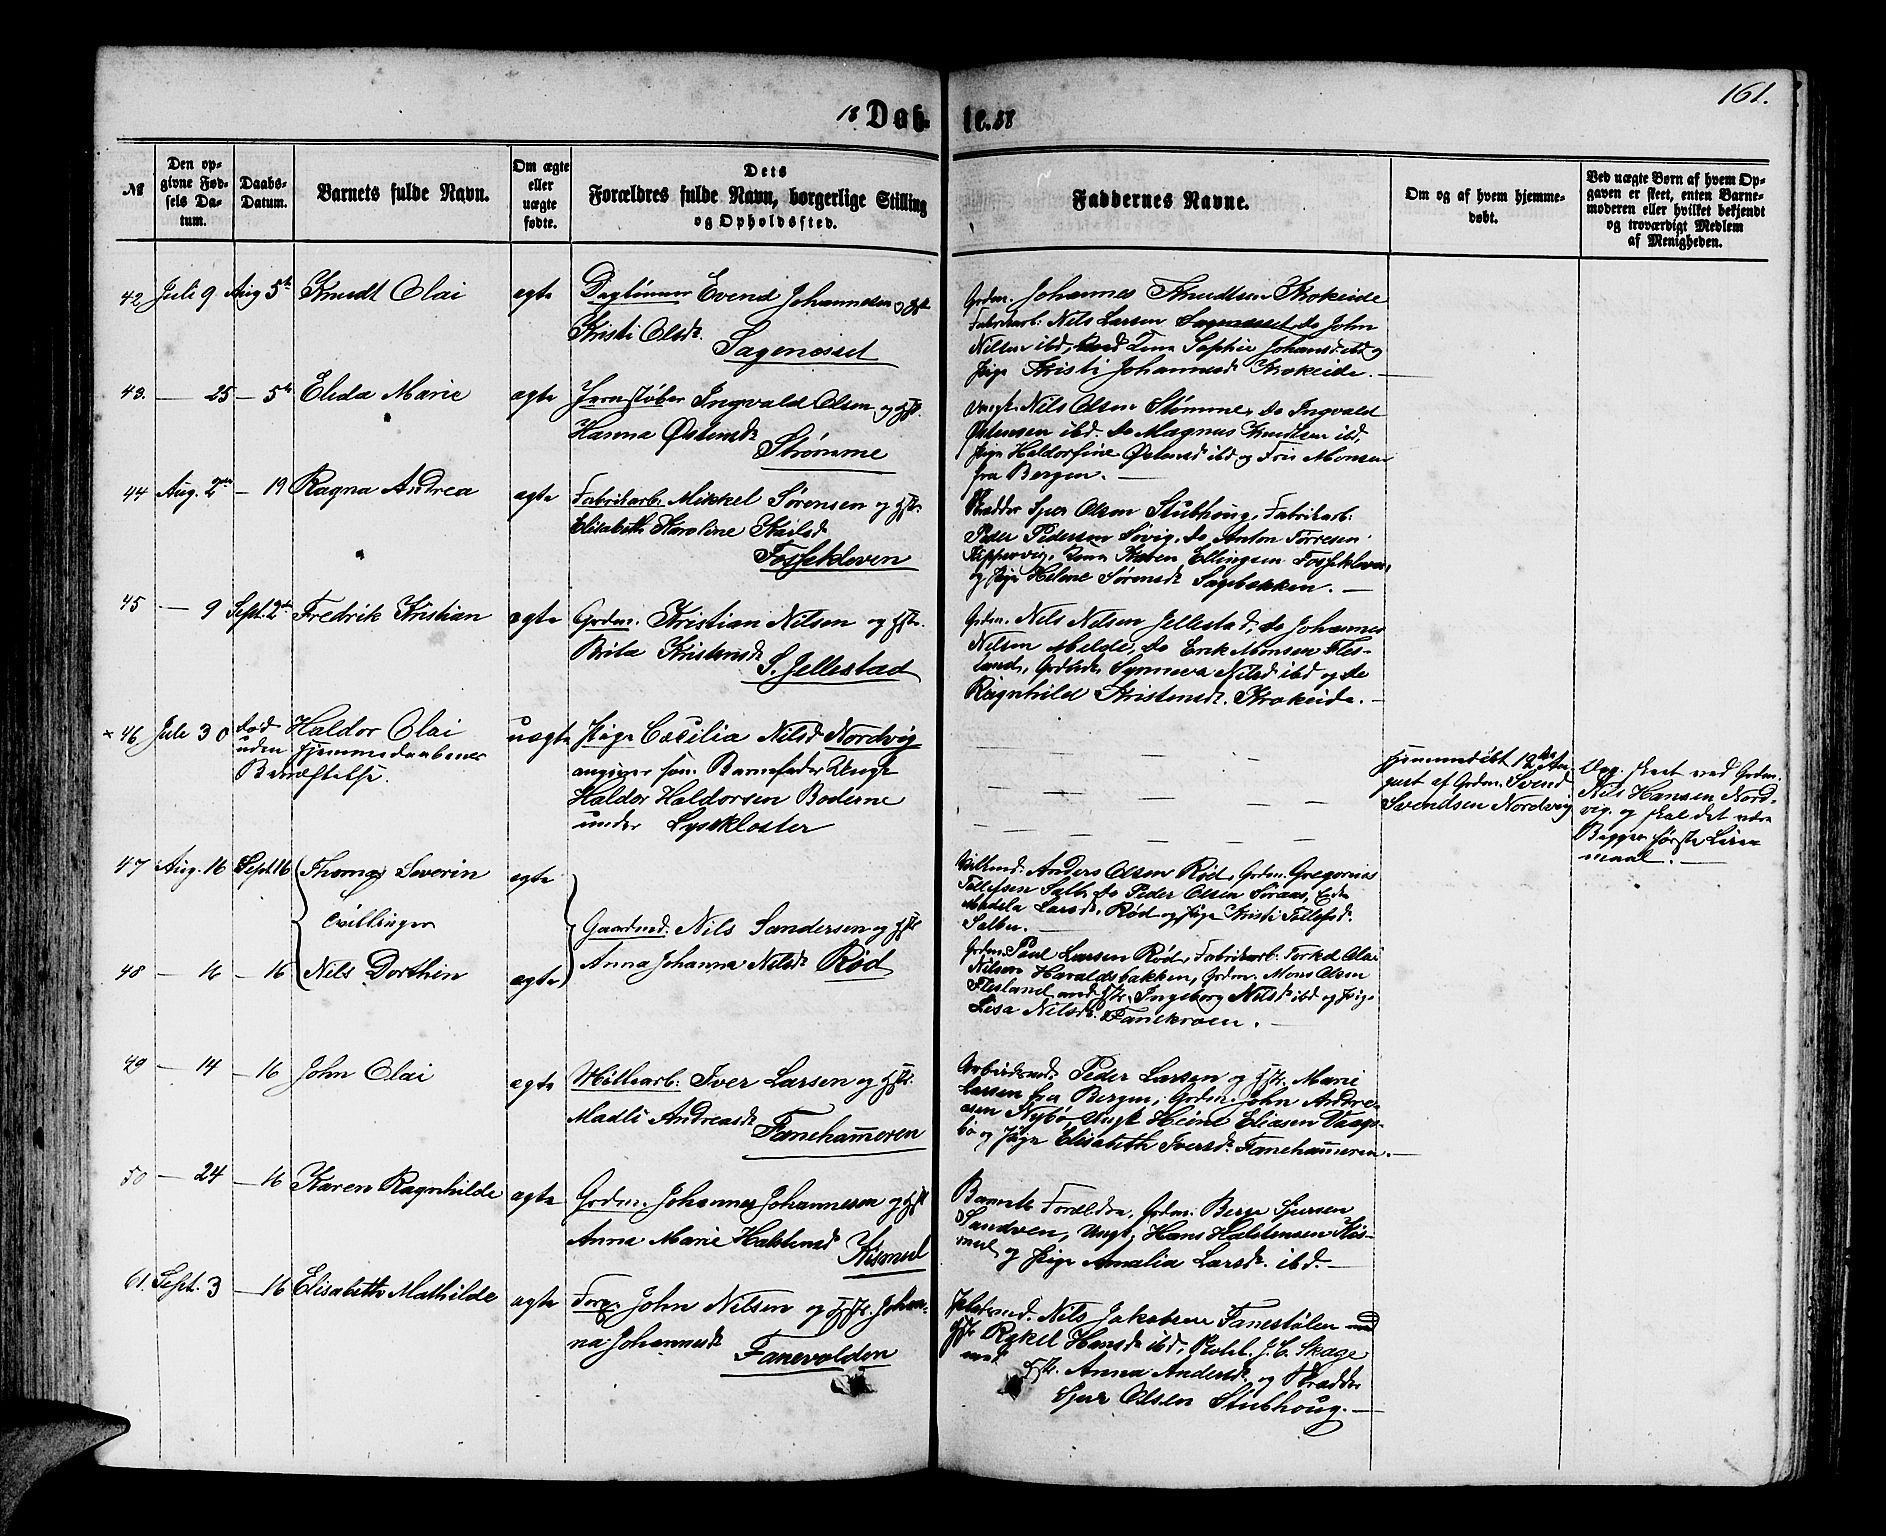 161.
18 Døb- te. 88
No
Den op-
givne Fød-
sels Da-
tum.
Daabs-
Datum.
Barnets fulde Navn.
Om ægte
eller
uægte
fødte.
Dets
Forældres fulde Navn, borgerlige Stilling
og Opholdssted.
Faddernes Navne.
Om og af hvem hjemme-
døbt.
Ved uægte Børn af hvem Op-
gaven er skeet, enten Barne-
moderen eller hvilket bekjendt
og troværdigt Medlem
af Menigheden.
42 Juli 9 Aug 5te Knudt Olai ægte Daglønner Evend Johannesen og Hst.
Kristi Olsdt.
Sagenesset
Grdm. Johannes Knudtsen Krokeide
Fabrikarb. Nils Larsen Sagenesset, do John
Nilsen ibd, Kone Sophie Johansdt ibd og
Pige Kristi Johannesdt Krokeide. —
43. — 25 — 5te Elida Marie ægte Jernstøber Ingvald Olsen og Hst.
Hanna Østensdt
Strømme
Ungk. Nils Olsen Strømme, do Ingvald
Østensen ibd. do Magnus Knudtsen ibd,
Pige Haldorfine Østensdt ibd og Monsen
fra Bergen. —
44 Aug. 2den — 19 Ragna Andrea ægte Fabrikarb. Mikkel Sørensen og Hst.
Elisabeth Karoline
Fossekleven
Skrædder Sjur Olsen Stubhoug, Fabrikarb.
Peder Pedersen Søvig, do Anton Torresen
Skippervig, Kone Karen Ellingsen Fossekleven,
og Pige Helene Sørensdt Sagebakken. —
45 — 9 Sept. 2den Fredrik Kristian ægte Grdm. Kristian Nilsen og Hst.
Brita Kristensdt
S. Jellestad
Grdm. Nils Nilsen Jellestad, do Johannes
Nilsen Milde, do Erik Monsen Fles-
land, Synneva Nilsdt ibd og do
Ragnhild Kristensdt. Krokeide. —
× 46 Juli 30 død Haldor Olai uægte Pige Cecilia Nilsdt Nordvig
uden Hjemmedaabens
Bekræftelse.
angiver som Barnefader Ungk
Haldor Haldorsen Boderne
under Lysekloster
Hjemmedøbt 12te Au-
gust af Grdm. Svend
Svendsen Nordvig
Opg. skeet ved Grdm.
Nils Hansen Nord-
vig. og skal det være
Begges første Leier-
maal. —
47 Aug. 16 Sept 16 Thomas Severin ægte
Tvillinger
Gaardmd. Nils Sandersen og Hst.
Anna Johanna Nilsdt Rød
Anders Olsen Rød, Grdm. Gregorius
Tollefsen Sælb, do Peder Olsen Søraas,
Madela Larsdt. Rød og Pige Kristi Tollefsdt.
Sælben. —
48 — 16 — 16 Nils Dorthin ægte
Grdm. Paul Larsen Rød, Fabrikarb. Torkel Olai
Nilsen Haraldsbakken, Grdm. Mons Olsen
Flesland med Hst. Ingeborg Nilsdt ibd og Pige
Lisa Nilsdt. Fanekroen. —
49 — 14 — 16 John Olai ægte Møllearb. Iver Larsen og Hst.
Madli Andreasdt
Fanehammeren
Arbeidsmd. Peder Larsen og Hst. Marie
Larsen fra Bergen, Grdm. John Andre-
asen Nybø, Ungk Heine Eliasen Vaage-
bø og Pige Elisabeth Iversdt. Fanehammeren. —
50 — 24 — 16 Karen Ragnhilde ægte Grdm. Johannes Johannesen og Hst
Anna Marie Halstensdt
Kismul
Barnets Forældre, Grdm. Berge Sjursen
Sandven, Ungk. Hans Halstensen Kis-
mul og Pige Amalia Larsdt. ibd. —
61. Sept. 3 — 16 Elisabeth Mathilde ægte John Nilsen og Hst. Johan-
na Johannesdt
Fanevolden
Pladsmd. Nils Jakobsen Fanestølen med
Hst Rakel Hansdt ibd, J. C. Skage
med Hst. Anna Andersdt. og Skrædder
Sjur Olsen Stubhoug. —